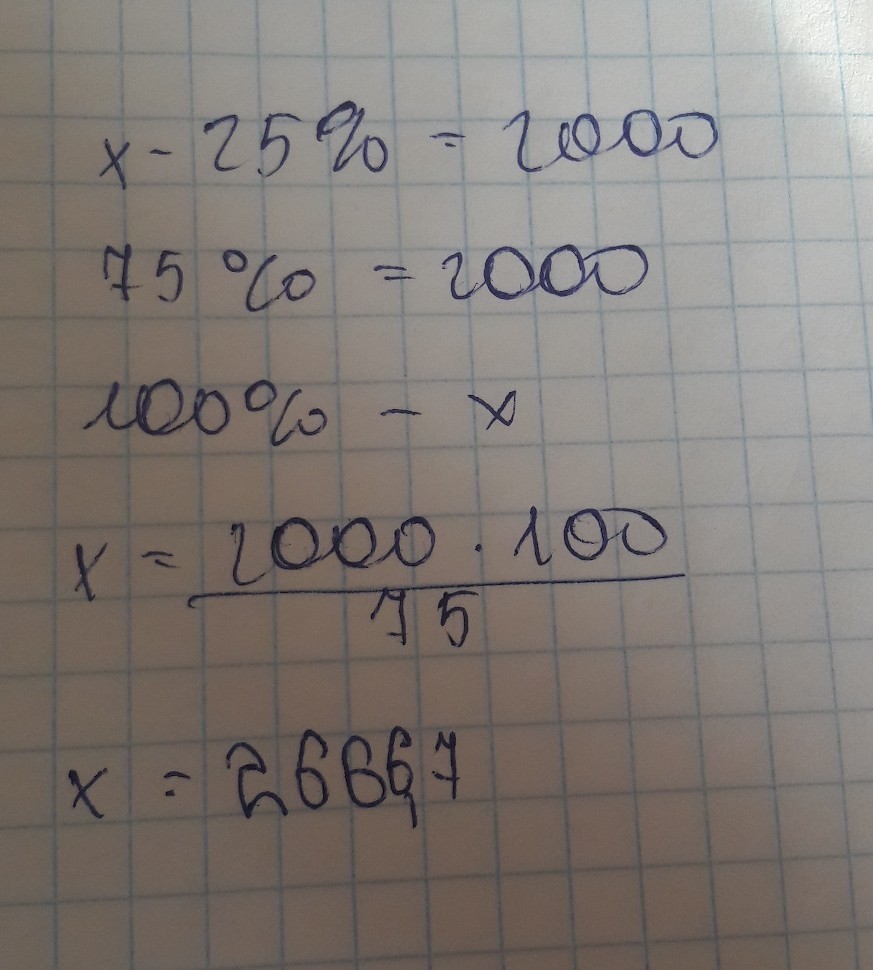 x - 25% = 2000
75% = 2000
100% - x
x = 2000 . 100
75
x = 2666,7